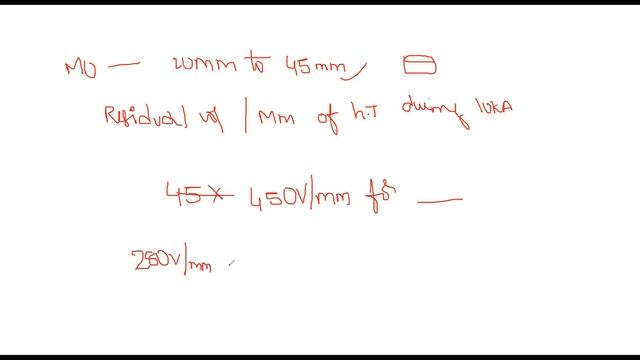 MO — 20mm to 45mm
Residual V/mm of h.T during 10kA
45x 450V/mm for —
250V/mm